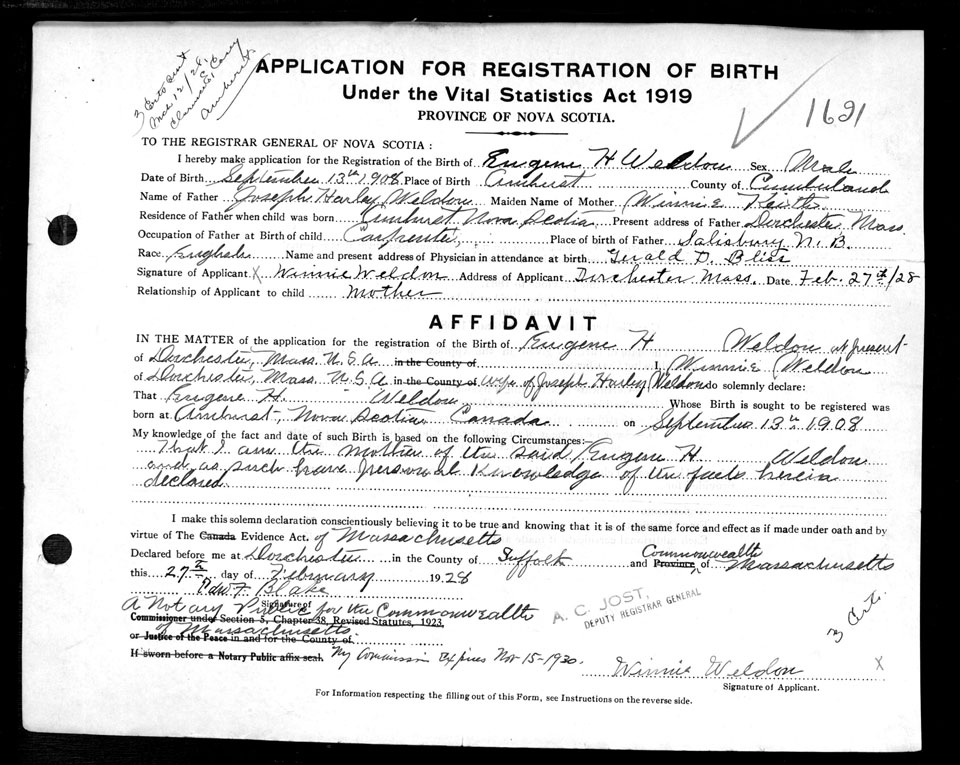 3 Certs sent
Mch 12/28,
Clarence E Casey
Amherst
APPLICATION FOR REGISTRATION OF BIRTH
Under the Vital Statistics Act 1919
PROVINCE OF NOVA SCOTIA.
1621
TO THE REGISTRAR GENERAL OF NOVA SCOTIA :
I hereby make application for the Registration of the Birth of Eugene H Weldon Sex Male
Date of Birth September 13th 1908 Place of Birth Amherst County of Cumberland
Name of Father Joseph Harley Weldon Maiden Name of Mother Winnie Keith
Residence of Father when child was born Amherst Nova Scotia Present address of Father Dorchester Mass.
Occupation of Father at Birth of child Carpenter, Place of birth of Father Salisbury N. B.
Race English Name and present address of Physician in attendance at birth Gerald D. Bliss
Signature of Applicant X Winnie Weldon Address of Applicant Dorchester Mass. Date Feb. 27th/28
Relationship of Applicant to child Mother
AFFIDAVIT
IN THE MATTER of the application for the registration of the Birth of Eugene H Weldon at present
of Dorchester, Mass. U.S.A. in the County of I, Winnie Weldon
of Dorchester, Mass. U.S.A. in the County of wife of Joseph Harley Weldon do solemnly declare:
That Eugene H. Weldon Whose Birth is sought to be registered was
born at Amherst, Nova Scotia Canada on September 13th 1908
My knowledge of the fact and date of such Birth is based on the following Circumstances:—
That I am the Mother of the said Eugene H. Weldon
and as such have personal knowledge of the facts herein
declared.
I make this solemn declaration conscientiously believing it to be true and knowing that it is of the same force and effect as if made under oath and by
virtue of The Canada Evidence Act. of Massachusetts
Declared before me at Dorchester in the County of Suffolk and Province Commonwealth of Massachusetts
this 27th day of February 1928
Edw F Blake
Signature of
A Notary Public for the Commonwealth
Commissioner under Section 5, Chapter 38, Revised Statutes, 1923,
of Massachusetts.
or Justice of the Peace in and for the County of
If sworn before a Notary Public affix seal. My Commission Expires Nov 15-1930.
A. C. JOST,
DEPUTY REGISTRAR GENERAL
3 Certs.
Winnie Weldon X
Signature of Applicant.
For Information respecting the filling out of this Form, see Instructions on the reverse side.